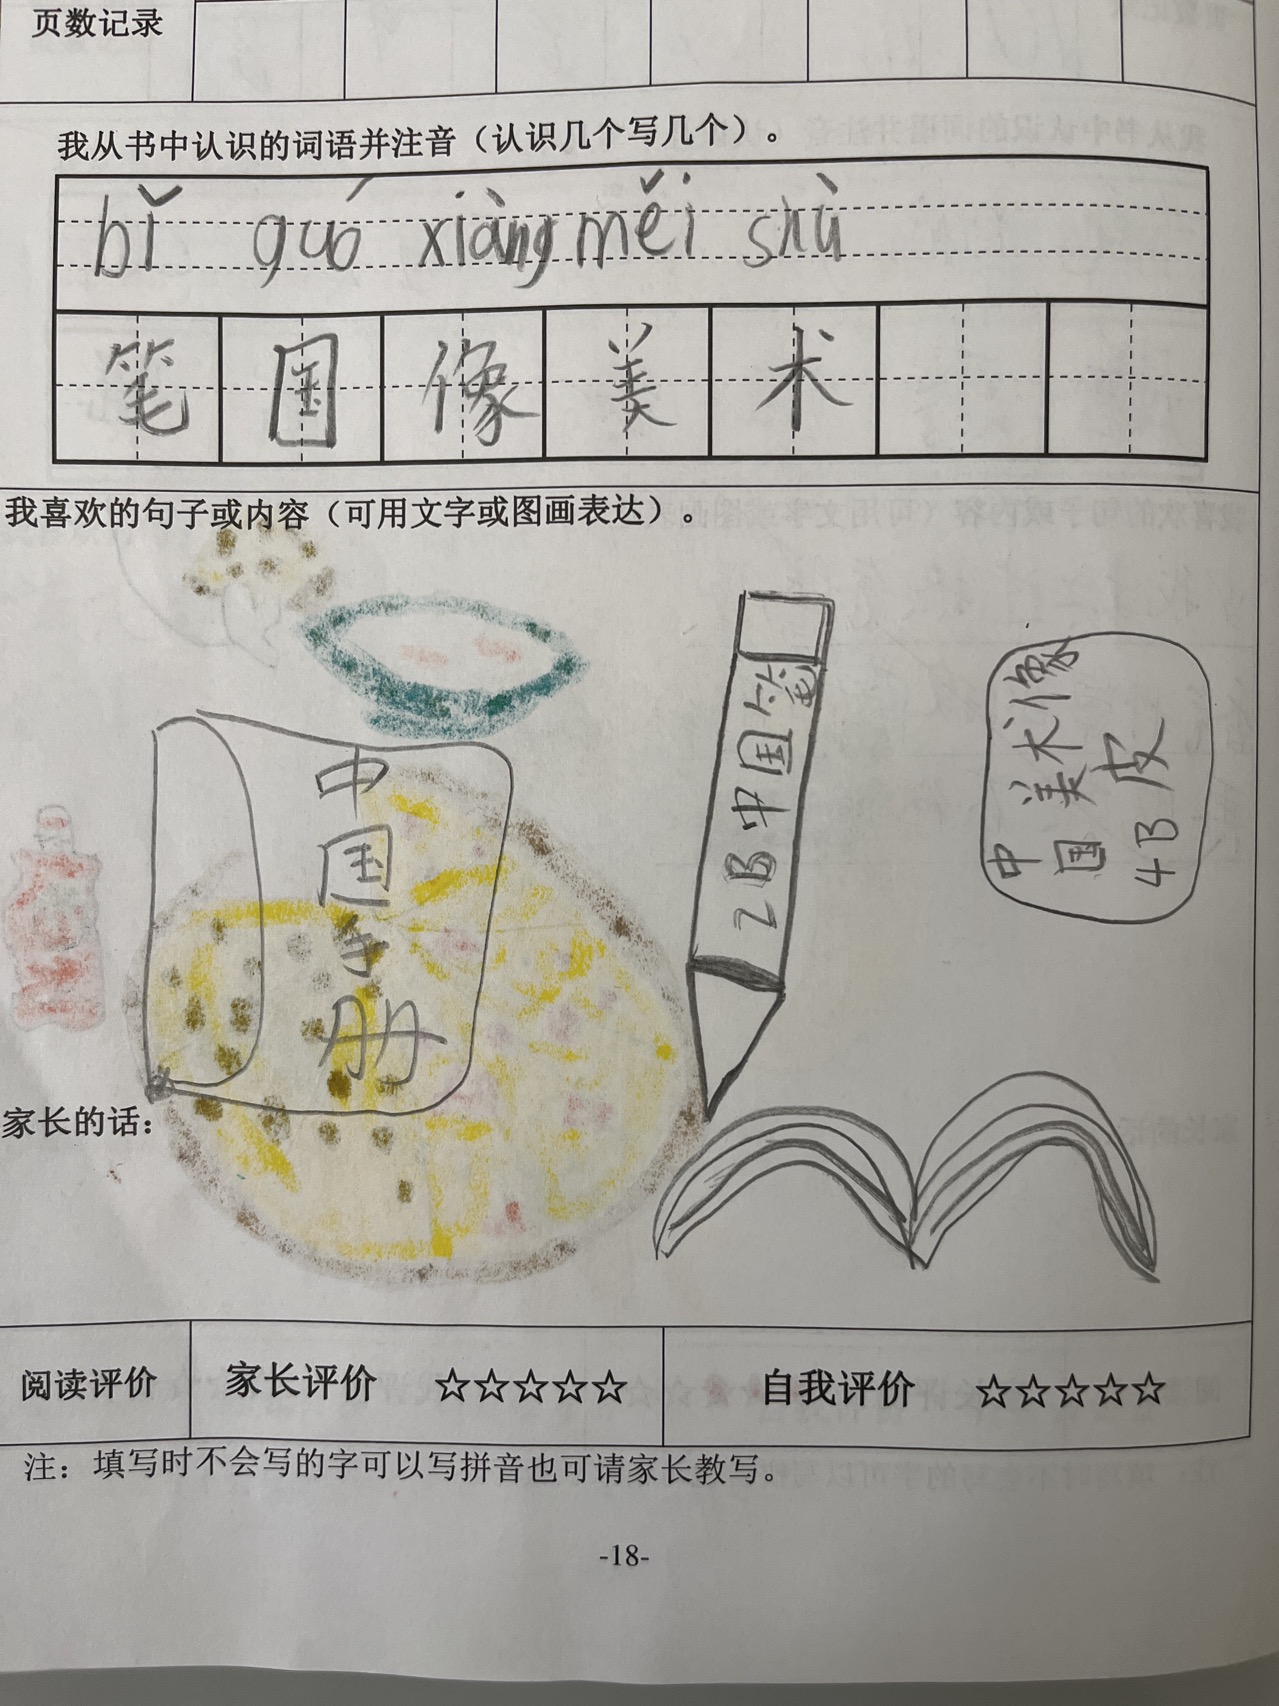 页数记录
我从书中认识的词语并注音（认识几个写几个）。
bǐ guó xiàng měi shù
笔 国 像 美 术
我喜欢的句子或内容（可用文字或图画表达）。
中国手册
2B中国笔
中国美术像皮4B
家长的话：
阅读评价 家长评价 ☆☆☆☆☆ 自我评价 ☆☆☆☆☆
注：填写时不会写的字可以写拼音也可请家长教写。
-18-